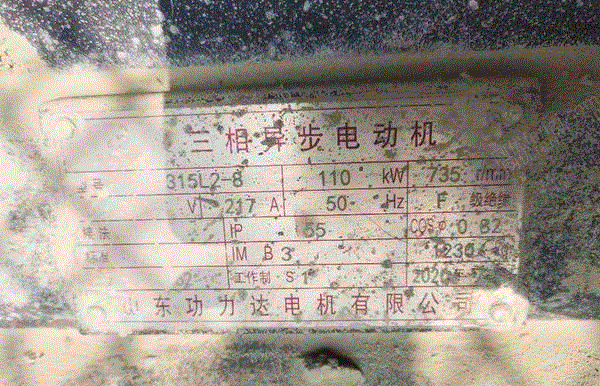 三相异步电动机
型号 315L2-8 110 kW 735 r/min
V 217 A 50 Hz F 级绝缘
接法 IP 55 COSφ 0.82
标准 IM B3 1230 kg
工作制 S1 2020年
山东功力达电机有限公司